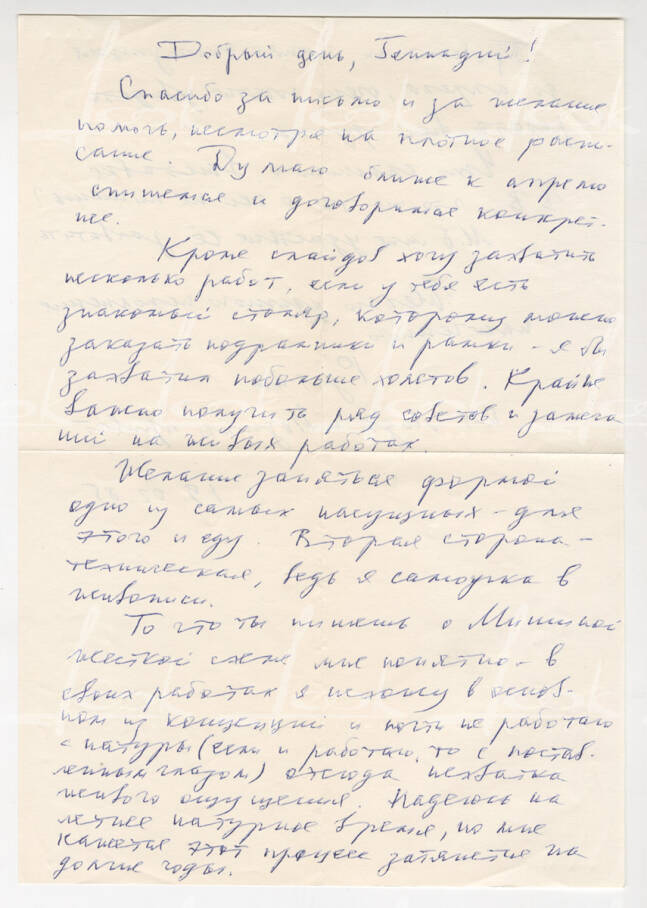 Добрый день, Геннадий!
Спасибо за письмо и за желание
помочь, несмотря на плотное распи-
сание. Думаю ближе к апрелю
спишемся и договоримся конкрет-
нее.
Кроме слайдов хочу захватить
несколько работ, если у тебя есть
знакомый столяр, которому можно
заказать подрамники и рамки - я бы
захватил побольше холстов. Крайне
важно получить ряд советов и замеча
ний на живых работах.
Желание заняться формой
одно из самых насущных - для
этого и еду. Вторая сторона -
техническая, ведь я самоучка в
живописи.
То что ты пишешь о Мишиной
жесткой схеме мне понятно - в
своих работах я исхожу в основ-
ном из концепций и почти не работаю
с натуры (если и работаю, то с постав-
ленным глазом) отсюда нехватка
живого ощущения. Надеюсь на
летнее натурное время, но мне
кажется этот процесс затянется на
долгие годы.